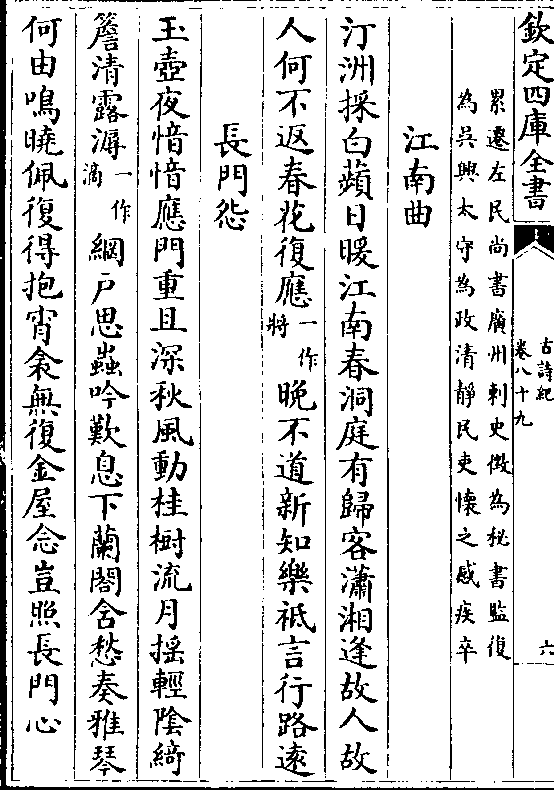 欽定四庫全書
古詩紀
卷八十九
六
累遷左民尚書廣州刺史徵為秘書監復
為吳興太守為政清靜民吏懷之感疾卒
江南曲
汀洲採白蘋日暖江南春洞庭有歸客瀟湘逢故人故
人何不返春花復應一作將晚不道新知樂祗言行路遠
長門怨
玉壺夜愔愔應門重且深秋風動桂樹流月揺輕隂綺
簷清露溽一作滴網戸思蟲吟歎息下蘭閣含愁奏雅琴
何由鳴曉佩復得抱宵衾無復金屋念豈照長門心